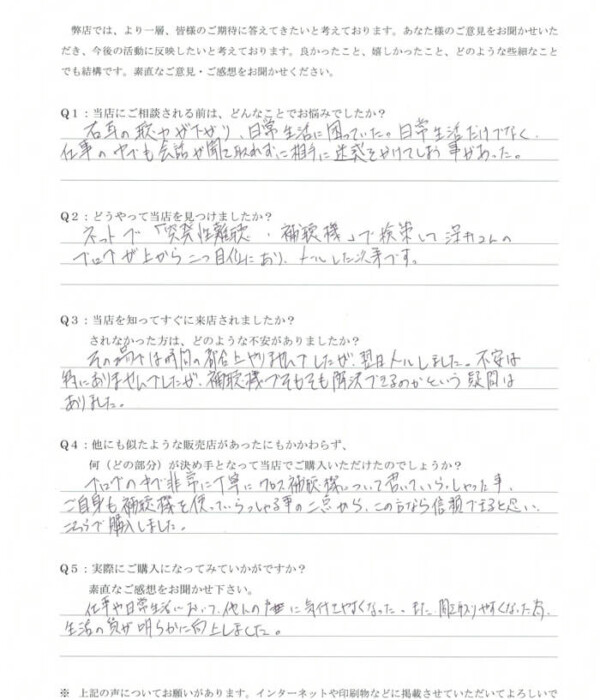 弊店では、より一層、皆様のご期待に答えてきたいと考えております。あなた様のご意見をお聞かせいた
だき、今後の活動に反映したいと考えております。良かったこと、嬉しかったこと、どのような些細なこと
でも結構です。素直なご意見・ご感想をお聞かせください。
Q1：当店にご相談される前は、どんなことでお悩みでしたか？
右耳の聴力が下がり、日常生活に困っていた。日常生活だけでなく、
仕事の中でも会話が聞き取れずに相手に迷惑をかけてしまう事があった。
Q2：どうやって当店を見つけましたか？
ネットで「突発性難聴 ・ 補聴機」で検索して深井さんの
ブログが上から二つ目位にあり、メールした次第です。
Q3：当店を知ってすぐに来店されましたか？
されなかった方は、どのような不安がありましたか？
その場では時間の都合上やりませんでしたが、翌日メールしました。不安は
特にありませんでしたが、補聴機でそもそも解決できるのかという疑問は
ありました。
Q4：他にも似たような販売店があったにもかかわらず、
何（どの部分）が決め手となって当店でご購入いただけたのでしょうか？
ブログの中で非常に丁寧にクロス補聴機について書いていらっしゃった事、
ご自身も補聴機を使っていらっしゃる事の二点から、この方なら信頼できると思い、
こちらで購入しました。
Q5：実際にご購入になってみていかがですか？
素直なご感想をお聞かせ下さい。
仕事や日常生活において、他人の声に気付きやすくなった、また聞き取りやすくなった為、
生活の質が明らかに向上しました。
※ 上記の声についてお願いがあります。インターネットや印刷物などに掲載させていただいてよろしいで